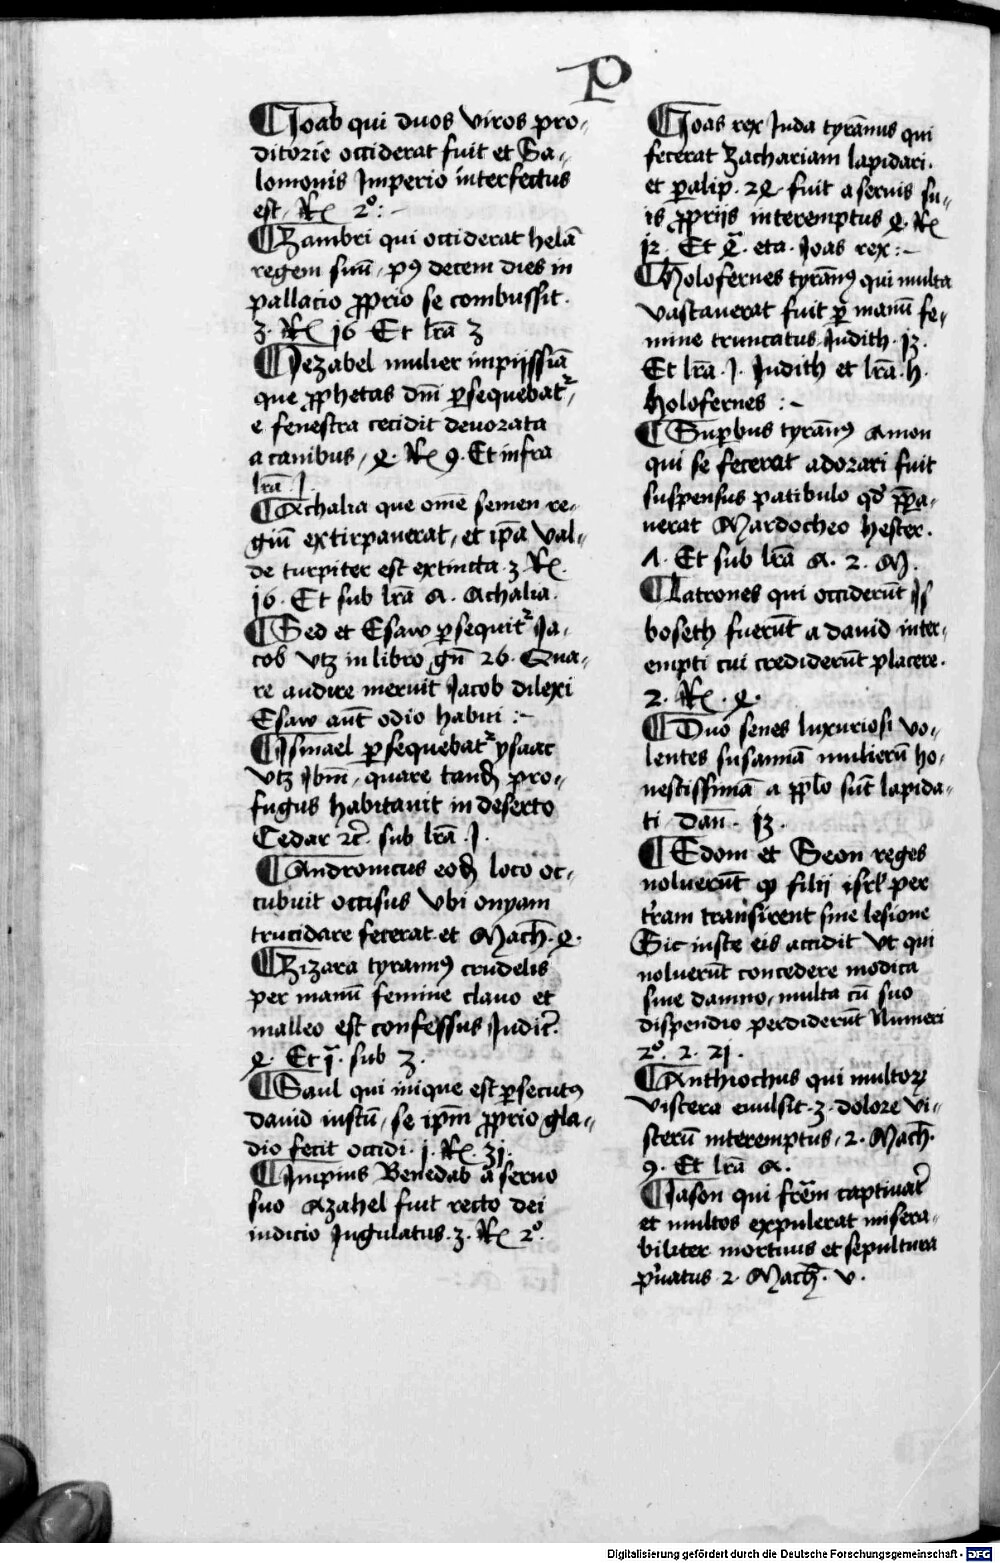 P
¶ Joab qui duos viros pro-
ditorie occiderat fuit et Sa-
lomonis Imperio interfectus
est, Rꝭ 2º:-
¶ Zambri qui occiderat helā
regem suū, pꝰ decem dies in
pallacio ꝓprio se combussit.
3. Rꝭ 16 Et lrā Z
¶ Jezabel mulier impijssiā
que ꝓphetas dn̄i ꝑsequebatᷣ,
e fenestra cecidit devorata
a canibus, 4. Rꝭ 9. Et infra
lrā. J.
¶ Achalia que om̄e semen re-
giū extirpauerat, et ip̄a val-
de turpiter est extincta. 3 Rꝭ.
16. Et sub lrā A. Achalia.
¶ Sed et Esaw ꝑsequitᷣ Ja-
cob vtz in libro gn̄ 26. Qua-
re audire meruit Jacob dilexi
Esaw aūt odio habui :-
¶ Ismael ꝑsequebatᷣ ysaac
vtz Ibm̄, quare tandē pro-
fugus habitauit in deserto
Cedar ꝛc̄. sub lrā. J.
¶ Andronicus eodē loco oc-
cubuit occisus vbi onyam
trucidare fecerat. et Mach. 4.
¶ Zizara tyrannꝰ crudelis
per manū femine clauo et
malleo est confessus Judic̄.
4. Et ī. sub Z.
¶ Saul qui inique est ꝑsecutꝰ
dauid iustū, se ip̄m ꝓprio gla-
dio fecit occidi. 1. Rꝭ. 31.
¶ Impius Benedab a seruo
suo Azahel fuit recto dei
iudicio Jugulatus. 3. Rꝭ 2º.
¶ Joas rex Juda tyrānus qui
fecerat Zachariam lapidari.
et ꝑalip̄. 24. fuit a seruis su-
is ꝓprijs interemptus 4. Rꝭ
12. Et eta. Joas rex :-
¶ Holofernes tyrānꝰ qui multa
vastauerat fuit ꝑ manū fe-
mine truncatus. Judith. 13.
Et lrā. J. Judith et lrā. h.
holofernes :-
¶ Suꝑbus tyrānꝰ Amon
qui se fecerat adorari fuit
suspensus patibulo qd̄ p̄pa-
uerat Mardocheo hester.
Et sub lrā A. 2. M.
¶ Latrones qui occiderūt Is
boseth fuerūt a dauid inter-
empti cui crediderūt placere.
2. Rꝭ. 4.
¶ Duo senes luxuriosi vo-
lentes susannā mulierū ho-
nestissimā a pp̄lo sūt lapida-
ti Dan̄. 13.
¶ Edom et Seon reges
noluerūt ꝙ filij isrl̄ per
t̄ram transirent sine lesione
Sic iuste eis accidit vt qui
noluerūt concedere modica
sine damno, multa cū suo
dispendio perdiderūt Numeri
2º. 2. 21.
¶ Anthiochus qui multoꝝ
viscera euulsit. 3. dolore vi-
scerū interemptus, 2. Mach.
9. Et lrā A.
¶ Jason qui fr̄em captiuat̄
et multos expulerat misera-
biliter mortuus et sepultura
p̄uatus 2. Mach. v.
Digitalisierung gefördert durch die Deutsche Forschungsgemeinschaft - DFG